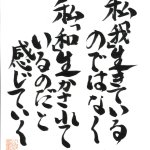 私我生きている
のではなく
私和生かされて
いるのだと
感じていく